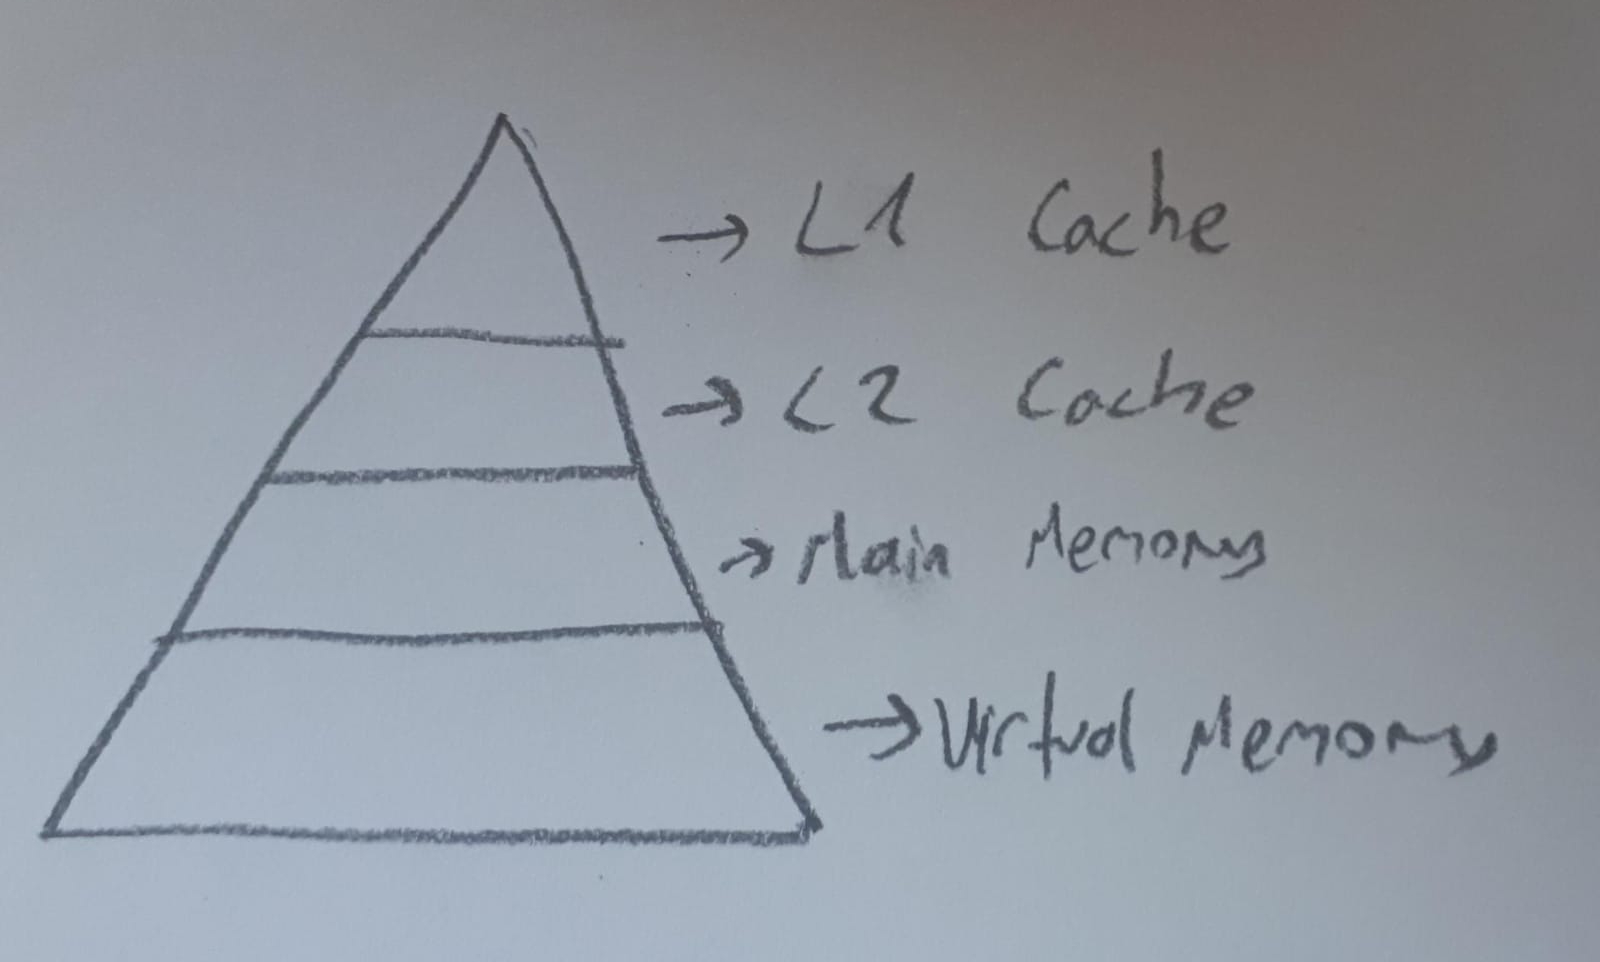 → L1 Cache
→ L2 Cache
→ Main Memory
→ Virtual Memory